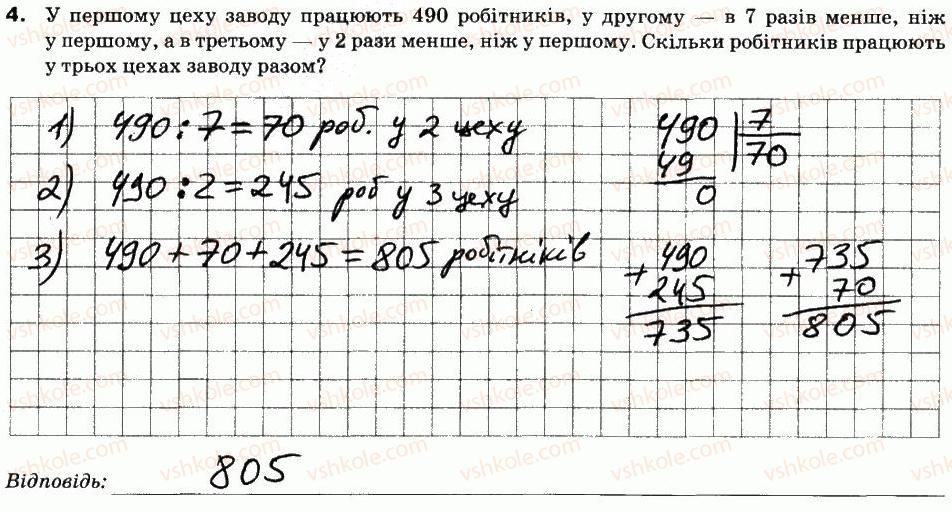 4. У першому цеху заводу працюють 490 робітників, у другому — в 7 разів менше, ніж
у першому, а в третьому — у 2 рази менше, ніж у першому. Скільки робітників працюють
у трьох цехах заводу разом?
1) 490 : 7 = 70 роб. у 2 цеху
490 | 7
49 | 70
0
2) 490 : 2 = 245 роб у 3 цеху
3) 490 + 70 + 245 = 805 робітників
490
+ 245
735
735
+ 70
805
Відповідь: 805
vshkole.com